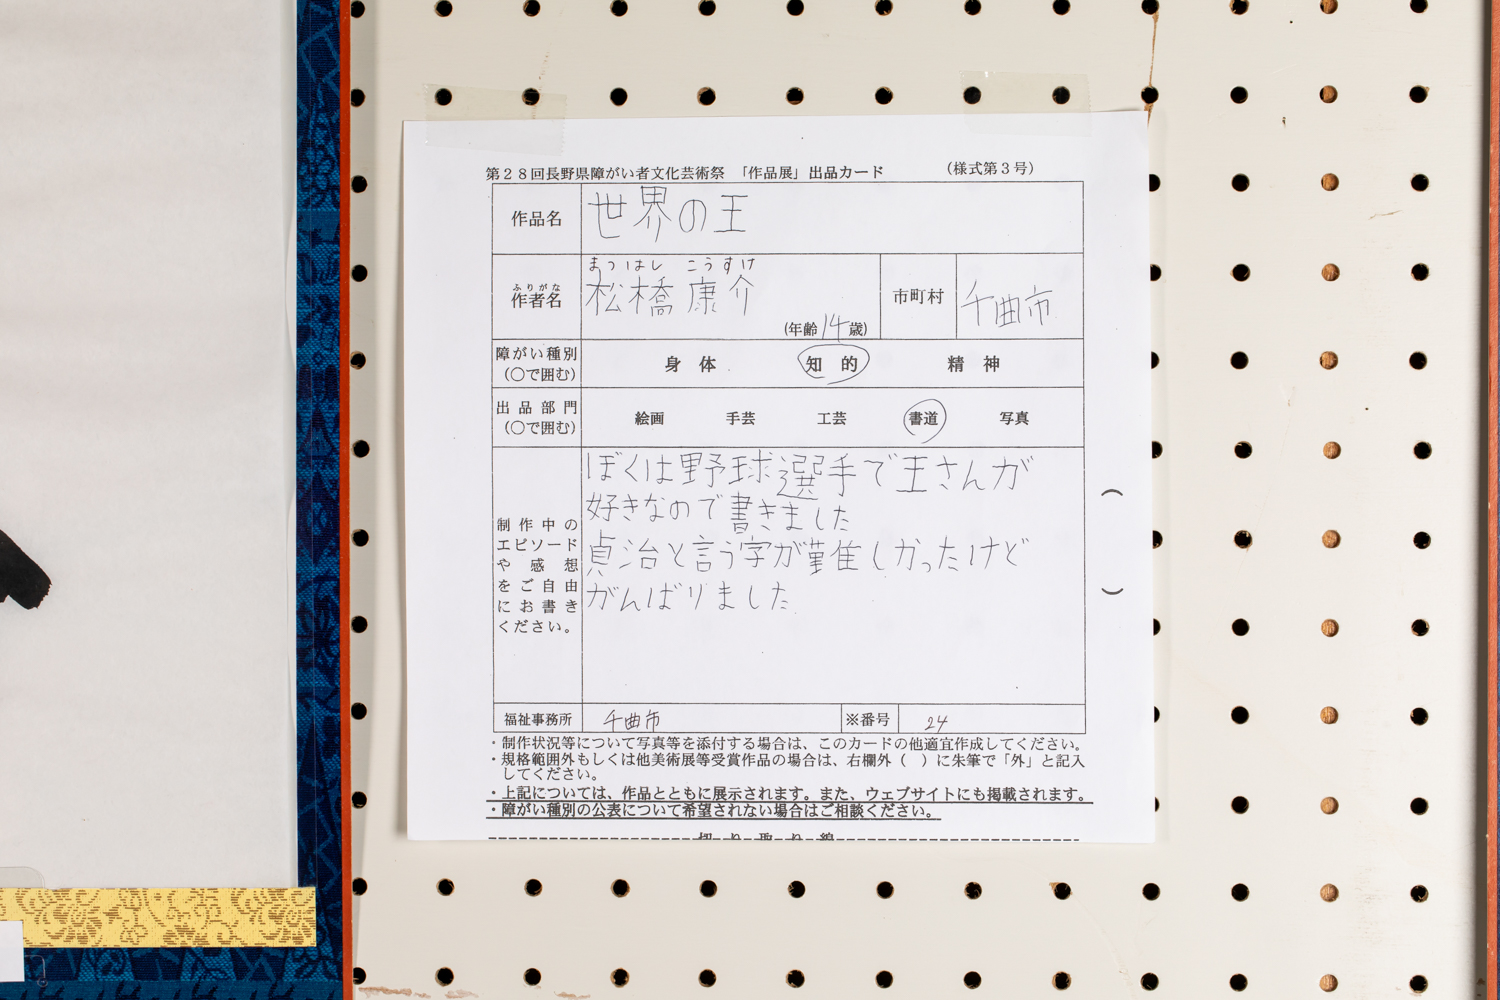 第28回長野県障がい者文化芸術祭 「作品展」出品カード (様式第3号)
作品名 世界の王
まつはし こうすけ
ふりがな
作者名 松橋 康介 (年齢 14 歳) 市町村 千曲市
障がい種別 (○で囲む) 身体 知的 精神
出品部門 (○で囲む) 絵画 手芸 工芸 書道 写真
制作中の
エピソード
や感想
をご自由
にお書き
ください。
ぼくは野球選手で王さんが
好きなので書きました
貞治と言う字が難しかったけど
がんばりました
( )
福祉事務所 千曲市 ※番号 24
・制作状況等について写真等を添付する場合は、このカードの他適宜作成してください。
・規格範囲外もしくは他美術展等受賞作品の場合は、右欄外( )に朱筆で「外」と記入
してください。
・上記については、作品とともに展示されます。また、ウェブサイトにも掲載されます。
・障がい種別の公表について希望されない場合はご相談ください。
切り取り線